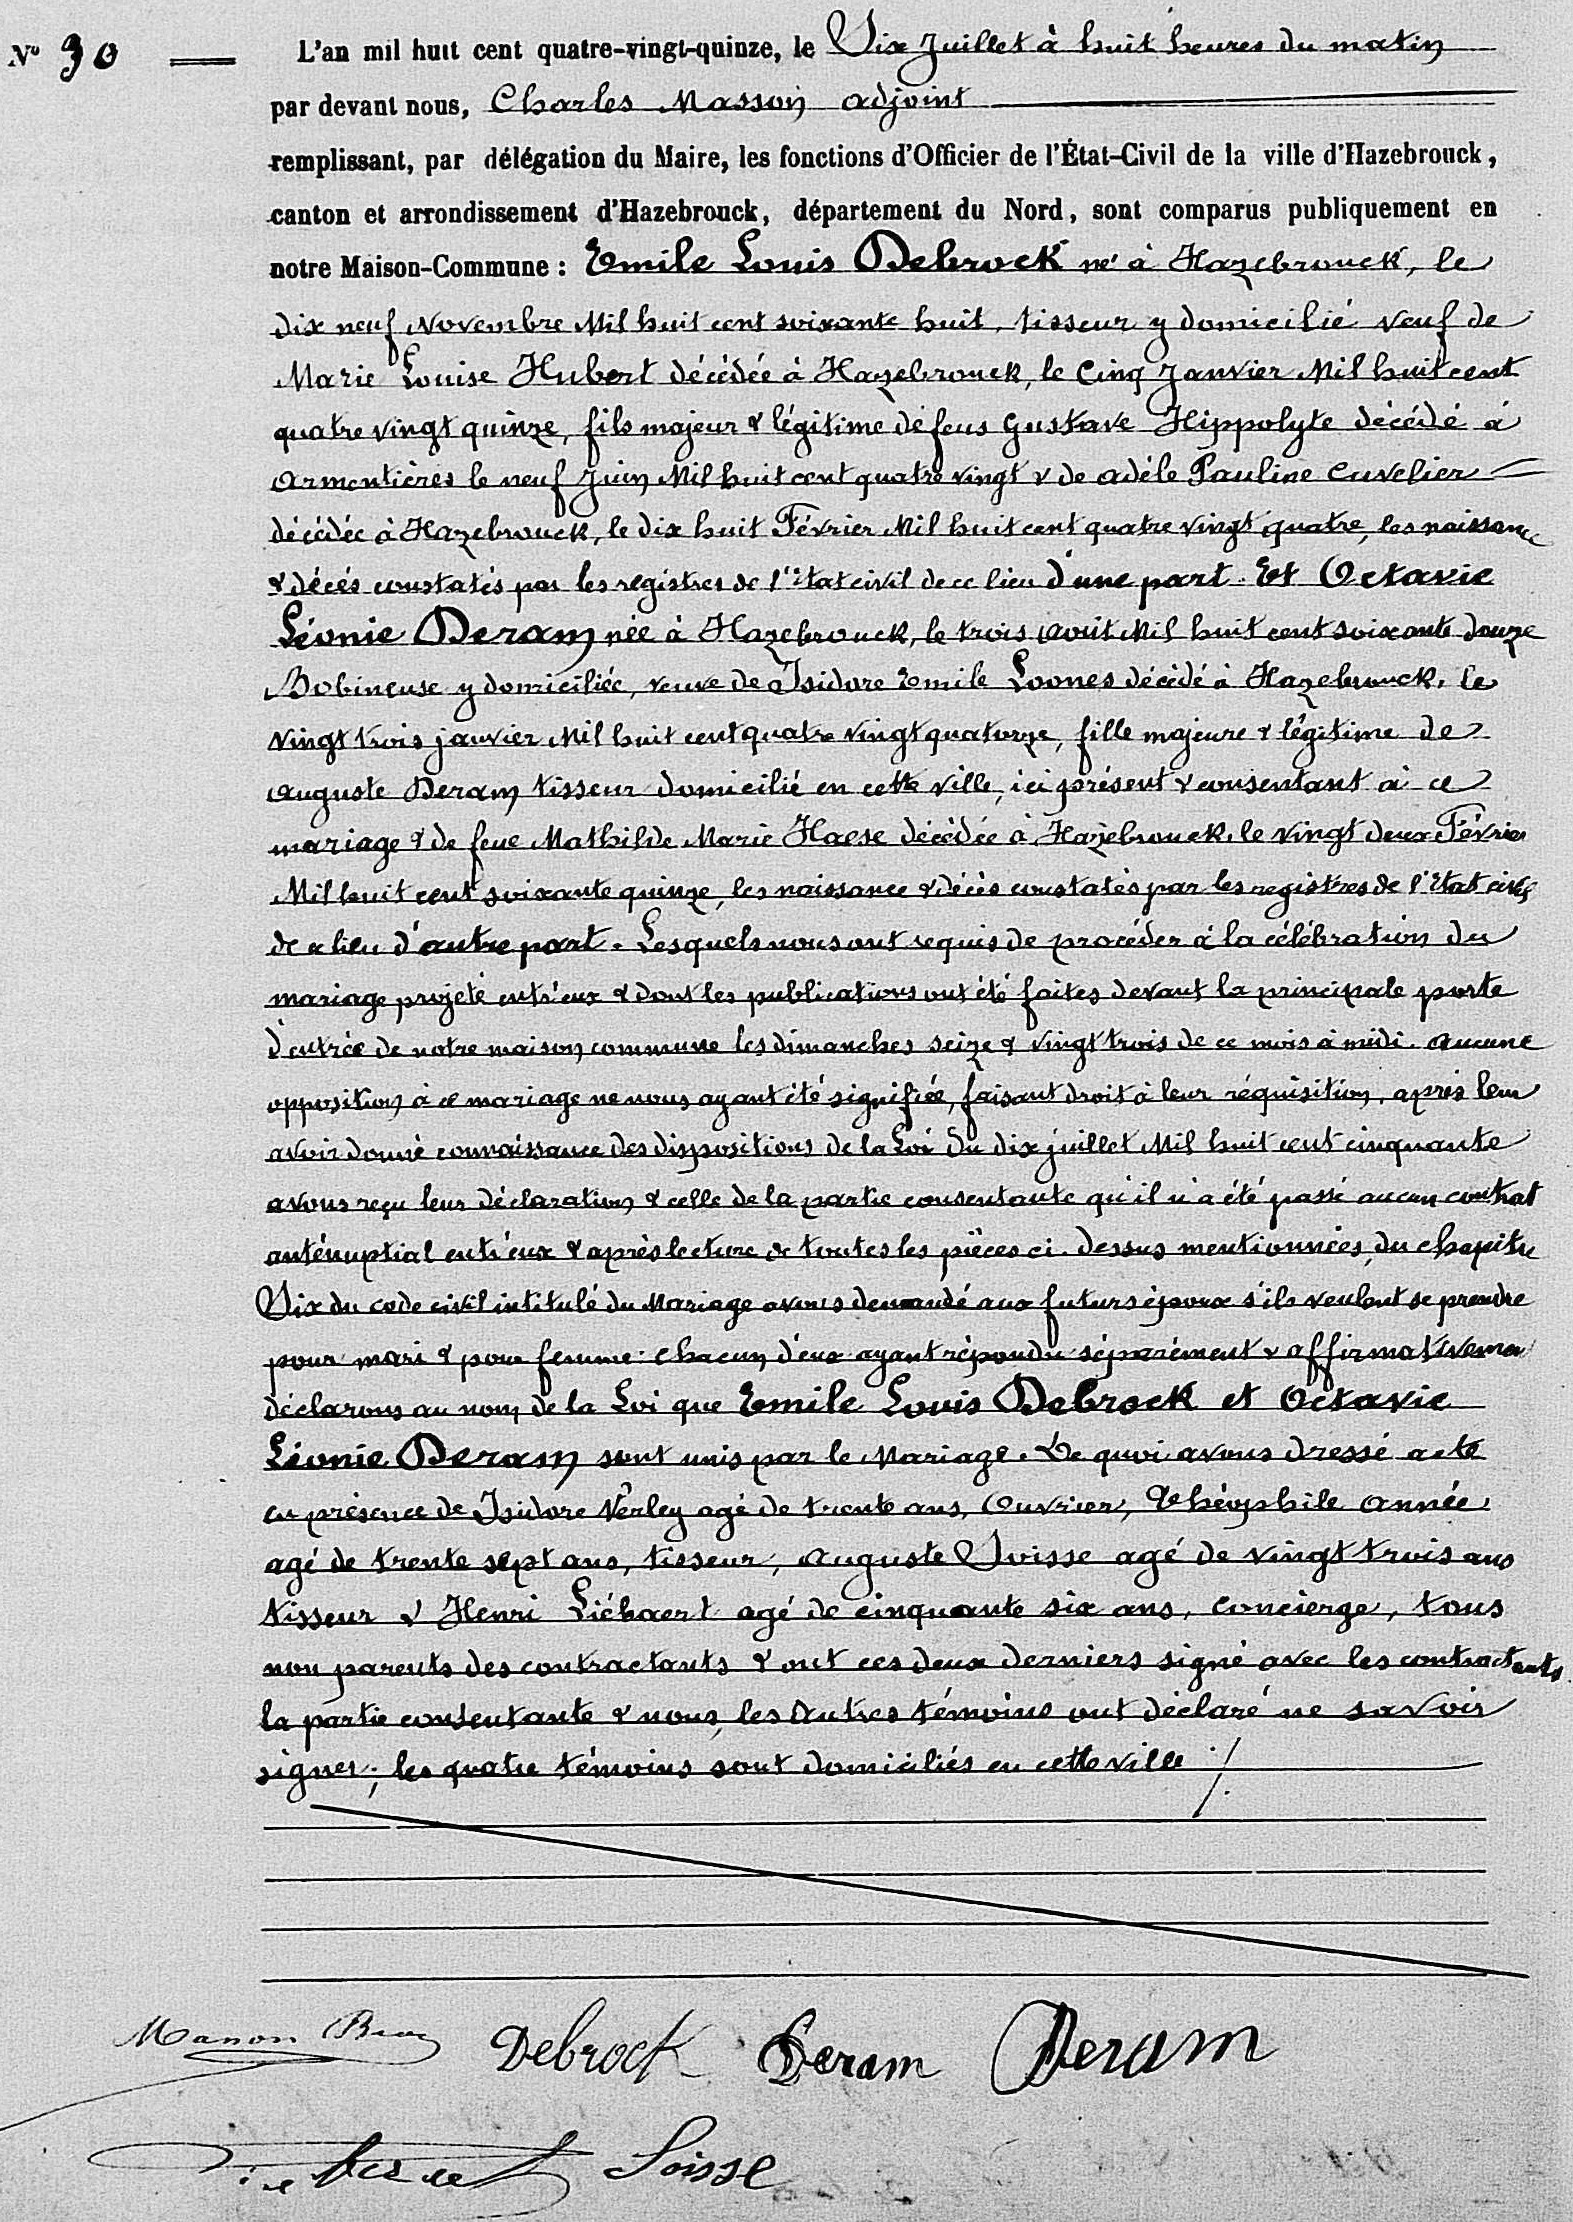 N° 90
L'an mil huit cent quatre-vingt-quinze, le Six Juillet à huit heures du matin
par devant nous, Charles Masson adjoint
remplissant, par délégation du Maire, les fonctions d'Officier de l'État-Civil de la ville d'Hazebrouck,
canton et arrondissement d'Hazebrouck, département du Nord, sont comparus publiquement en
notre Maison-Commune : Emile Louis Debrock né à Hazebrouck, le
dix neuf Novembre Mil huit cent soixante huit, tisseur y domicilié veuf de
Marie Louise Hubert décédée à Hazebrouck, le Cinq Janvier Mil huit cent
quatre vingt quinze, fils majeur & légitime de feus Gustave Hippolyte décédé à
Armentières le neuf Juin Mil huit cent quatre vingt & de Adèle Pauline Cuvelier
décédée à Hazebrouck, le dix huit Février Mil huit cent quatre vingt quatre, les naissance
& décés constatés par les registres de l'Etat civil de ce lieu d'une part. Et Octavie
Léonie Deram née à Hazebrouck, le trois Août Mil huit cent soixante douze
Bobineuse y domiciliée, veuve de Isidore Emile Loones décédé à Hazebrouck, le
vingt trois janvier Mil huit cent quatre vingt quatorze, fille majeure & légitime de
Auguste Deram tisseur domicilié en cette ville, ici présent & consentant à ce
mariage & de feue Mathilde Marie Haese décédée à Hazebrouck, le vingt deux Février
Mil huit cent soixante quinze, les naissance & décès constatés par les registres de l'Etat civil
de ce lieu d'autre part. Lesquels nous ont requis de procéder à la célébration du
mariage projeté entr'eux & dont les publications ont été faites devant la principale porte
d'entrée de notre maison commune les dimanches seize & vingt trois de ce mois à midi. Aucune
opposition à ce mariage ne nous ayant été signifiée, faisant droit à leur réquisition, après leur
avoir donné connaissance des dispositions de la Loi du dix juillet Mil huit cent cinquante
avons reçu leur déclaration & celle de la partie consentante qu'il n'a été passé aucun contrat
anténuptial entr'eux & après lecture de toutes les pièces ci-dessus mentionnées, du chapitre
Six du code civil intitulé du Mariage avons demandé aux futurs époux s'ils veulent se prendre
pour mari & pour femme : chacun d'eux ayant répondu séparément & affirmativement
déclarons au nom de la Loi que Emile Louis Debrock et Octavie
Léonie Deram sont unis par le Mariage. De quoi avons dressé acte
en présence de Isidore Verley agé de trente ans, Ouvrier, Théophile Année
agé de trente sept ans, tisseur, Auguste Soisse agé de vingt trois ans
tisseur & Henri Liébaert agé de cinquante six ans, Concierge, tous
non parents des contractants & ont ces deux derniers signé avec les contractants
la partie consentante & nous, les autres témoins ont déclaré ne savoir
signer; les quatre témoins sont domiciliés en cette ville ./.
Debrock Deram Deram
Soisse